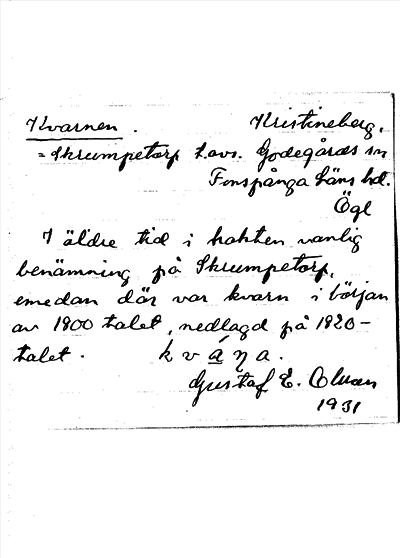 Kvarnen. Kristineberg,
= Skrumpetorp h.avs. Godegårds sn
Finspånga läns hd.
Ögl
I äldre tid i trakten vanlig
benämning på Skrumpetorp,
emedan där var kvarn i början
av 1800 talet, nedlagd på 1820-
talet. kváŋa.
Gustaf E. Olsson
1931